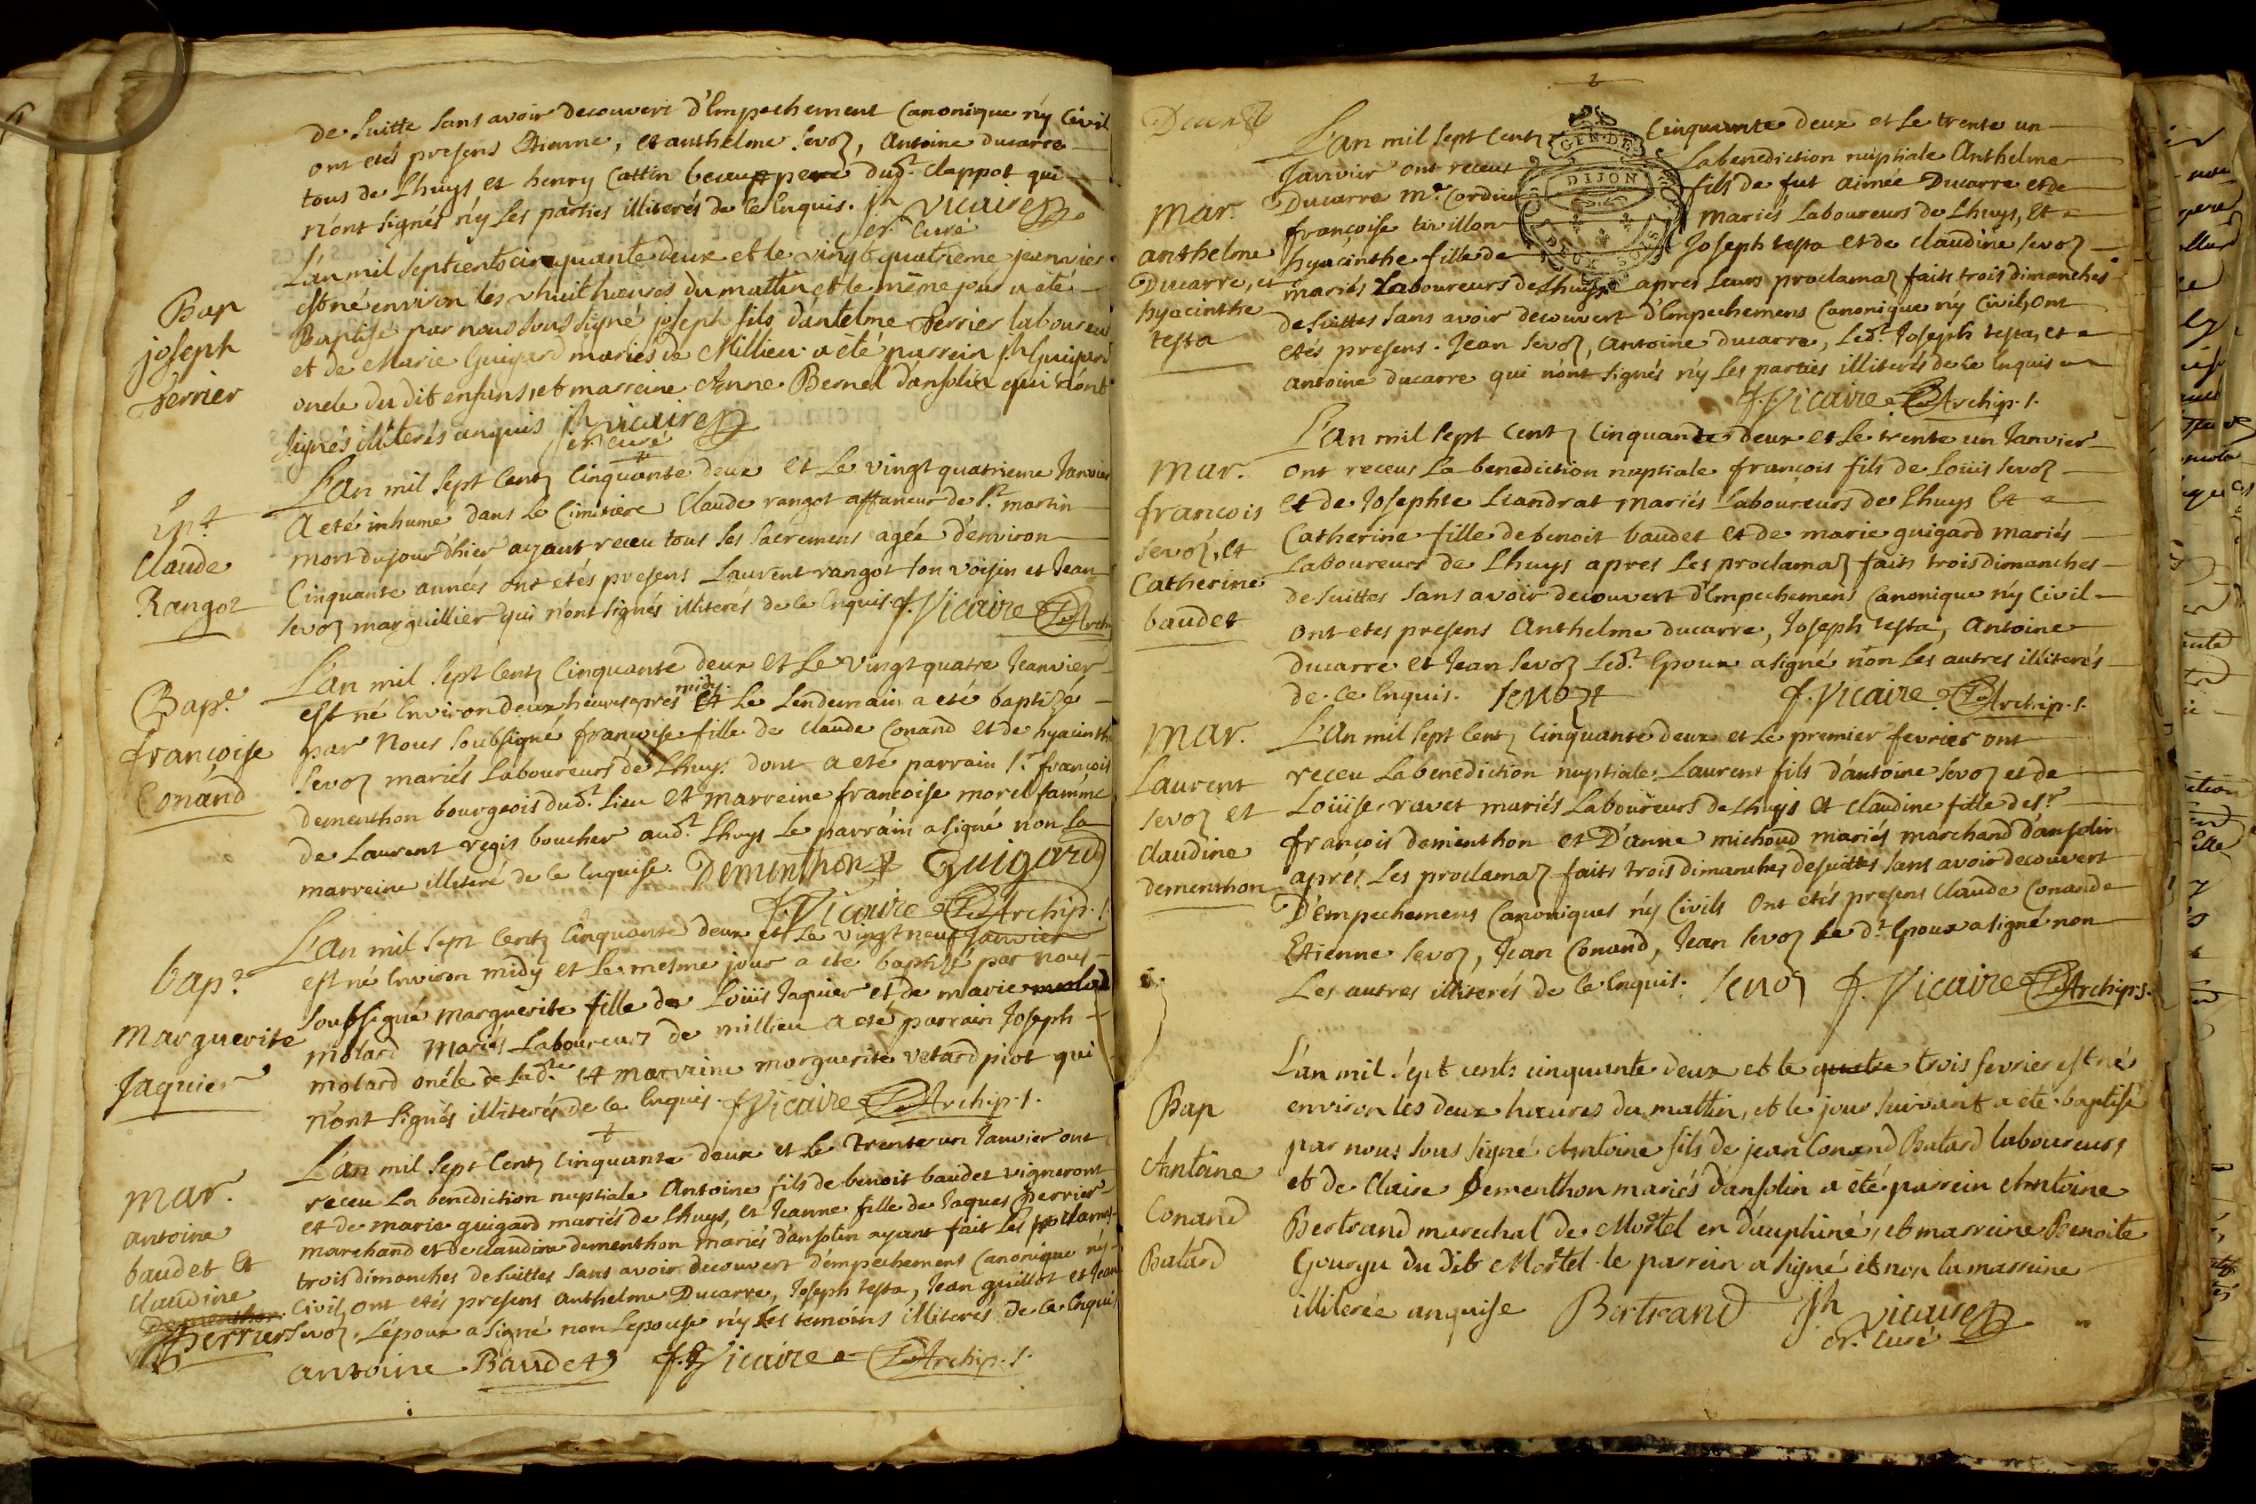 de suitte sans avoir decouvert d'Empechement Canonique n'y Civil
ont etés presens Etienne, et anthelme sevoz, Antoine ducarre
tous de Lhuys et henry Cattin beaupere dud.t Clappot qui
n'ont signés n'y les parties illiterés de ce Enquis. jh vicaire
et curé
L'an mil septcents cinquante deux et le vingt quatrieme jeanvier
est né environ les huit heures du mattin et le même jour a été
Baptisé par nous sous signé joseph fils d'antelme Perrier laboureur
et de Marie Guigard mariés de Millieu a été parrein jh Guigard
oncle du dit enfans, et marreine Anne Bernel d'ansolin qui n'ont
signés illiterés anquis jh vicaire
et curé
Bap
joseph
Perrier
L'an mil sept Centz Cinquante deux et Le vingt quatrieme Janvier
A eté inhumé dans Le Cimitiere Claude rangot affaneur de S.t martin
mort dujour d'hier ayant receu tous ses sacremens agée d'environ
Cinquante années ont etés presens Laurent rangot son voisin et Jean
sevoz marguillier qui n'ont signés illiterés de ce Enquis f. Vicaire Archi
Claude
Rangot
L'an mil sept Centz Cinquante deux Et Le vingt quatre Jeanvier
est né Environ deux heures aprés midy Et Le Lendemain a eté baptizée
par Nous soubsigné francoise fille de Claude Conand et de hyacinth
Sevoz mariés Laboureurs de Lhuys dont a eté parrain s.r francois
dementhon bourgeois dud.t Lieu Et marreine francoise morel famme
de Laurent regis boucher aud.t Lhuys Le parrain a signé non la
marreine illiteré de ce Enquise. Deminthon Guigard
f. Vicaire Archip. s.
Bap.e
françoise
Conand
L'an mil sept Centz Cinquante deux et Le vingt neuf Janvier
est né Environ midy et Le mesme jour a eté baptizé par nous
soubsigné marguerite fille de Loüis Jaquier et de marie molad
molard Mariés Laboureurs de millieu a eté parrain Joseph
molard oncle de lad.te et marreine marguerite vetard piot qui
n'ont signés illiterés de ce Enquis. f. Vicaire Archip. s.
bap.e
marguerite
Jaquier
L'an mil sept Centz Cinquante deux et Le Trente un Janvier ont
receu La benediction nuptiale Antoine fils de benoit baudet vigneront
et de marie guigard mariés de Lhuys, et Jeanne fille de Jaques perrier
marchand et de claudine dementhon mariés d'ansolin ayant fait Les proclamaõ
trois dimanches de suittes sans avoir decouvert d'empechement Canonique n'y
Civil, ont etés presens anthelme Ducarre, Joseph testa, Jean guillot et Jean
Sevoz. L'époux a signé non L'epouse n'y les temoins illiterés de ce Enquis
antoine Baudet f. Vicaire Archip. s.
mar.
antoine
baudet et
Claudine
Dementhon
perrier
2
Deux
L'an mil sept Centz Cinquante deux et Le trente un
Janvier ont receus La benediction nuptiale Anthelme
Ducarre m.e Cordier fils de fut aimée Ducarre et de
françoise tirvillon mariés Laboureurs de Lhuys, Et
hyacinthe fille de Joseph testa et de claudine sevoz
mariés Laboureurs de Lhuys apres Leurs proclamaz faits trois dimanches
de suittes sans avoir decouvert d'Empechemens Canonique n'y Civil, ont
etés presens. Jean sevoz, antoine ducarre, Led.t Joseph testa, et
antoine ducarre qui n'ont signés n'y Les parties illiterés de ce Enquis
f. Vicaire Archip. s.
GEN. DE
DIJON
DEUX SOLS
mar.
anthelme
Ducarre, et
hyacinthe
testa
L'an mil sept Centz Cinquante deux et Le trente un Janvier
ont receus La benediction nuptiale françois fils de Loüis sevoz
et de Josephte Liandrat mariés Laboureurs de Lhuys Et
Catherine fille de benoit baudet et de marie guigard mariés
Laboureurs de Lhuys apres Les proclamaz faits trois dimanches
de suittes sans avoir decouvert d'Empechemens Canonique n'y Civil
ont etes presens Anthelme ducarre, Joseph testa, Antoine
ducarre et Jean sevoz Led.t Epoux a signé non Les autres illiterés
de ce Enquis. sevoz f. Vicaire Archip. s.
mar.
françois
sevoz, et
Catherine
baudet
L'an mil sept Centz Cinquante deux et Le premier fevrier ont
receu La benediction nuptiale Laurent fils d'antoine sevoz et de
Loüise ravet mariés Laboureurs de Lhuys et claudine fille de s.r
françois dementhon et D'anne michoud mariés marchand d'ansolin
aprés Les proclamaz faits trois dimanches de suittes sans avoir decouvert
D'Empechemens Canoniques n'y Civils ont etés presens Claude Conand
Etienne sevoz, Jean Conand, Jean sevoz Le d.t Epoux a signé non
Les autres illiterés de ce Enquis. sevoz f. Vicaire Archip. s.
mar.
Laurent
sevoz et
claudine
dementhon
L'an mil sépt cents cinquante deux et le quatre trois fevrier est né
environ les deux heures du mattin, et le jour suivant a été baptisé
par nous sous signé Antoine fils de jean Conand Batard laboureurs
et de Claire Dementhon mariés d'ansolin a été parrein Antoine
Bertrand marechal de Mortel en dauphiné, et marreine Benoite
Gourju du dit Mortel le parrein a signé et non la marreine
illiterée anquise Bertrand jh vicaire
et curé
Bap
Antoine
Conand
Batard